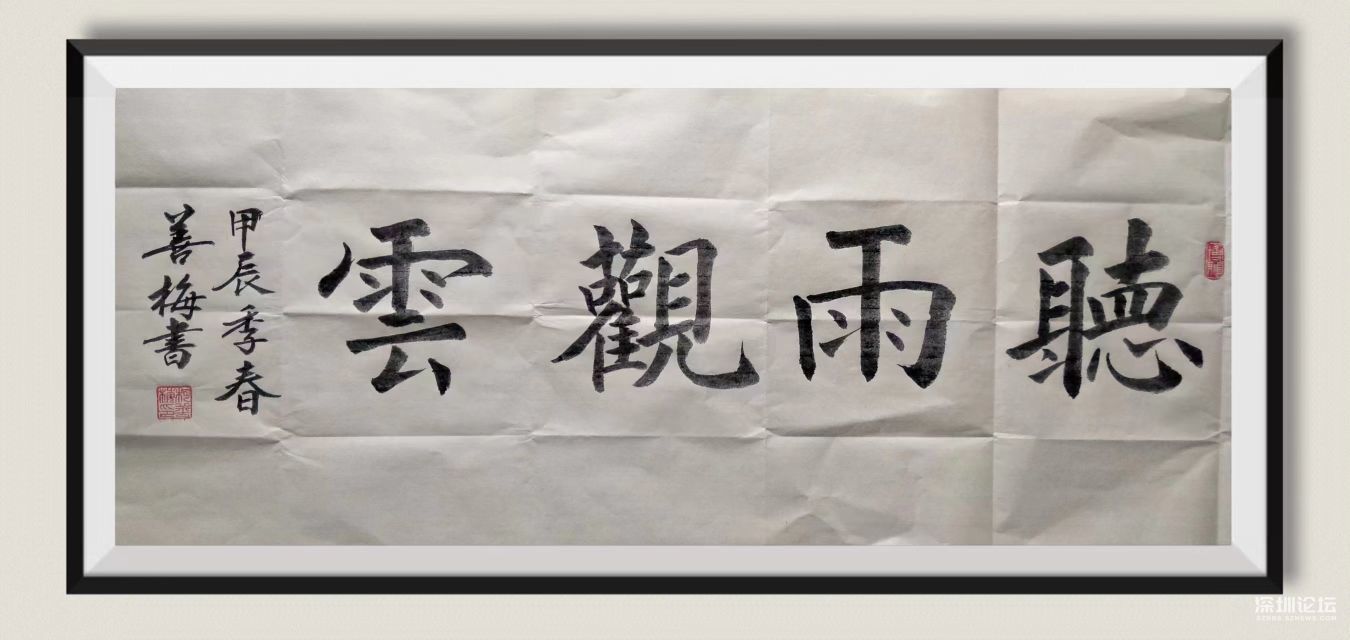 聽雨觀雲
甲辰季春
善梅書
深圳论坛
SZBBS.SZNEWS.COM